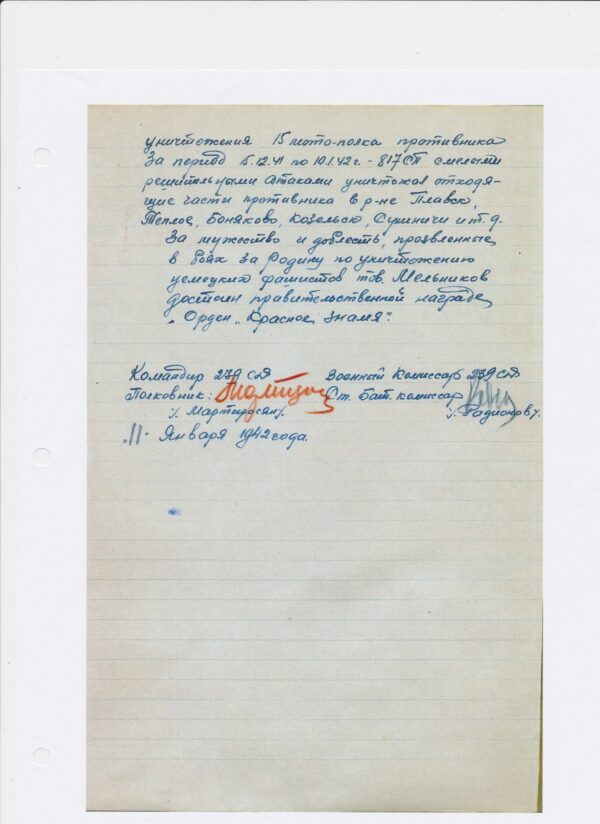 уничтожения 15 мото-полка противника
За период 15.12.41 по 10.1.42г. - 817СП смелыми
решительными атаками уничтожал отходя-
щие части противника в р-не Плавск,
Теплое, Боняково, Козельск, Сухиничи и т.д.
За мужество и доблесть, проявленные
в боях за Родину по уничтожению
немецких фашистов тов. Мельников
достоин правительственной награде
"Орден "Красное знамя".
Командир 239 СД Военный Комиссар 239 СД
Полковник: Ст. Бат. комиссар
/. Мартиросян/. /. Радионов/.
"11" Января 1942 года.